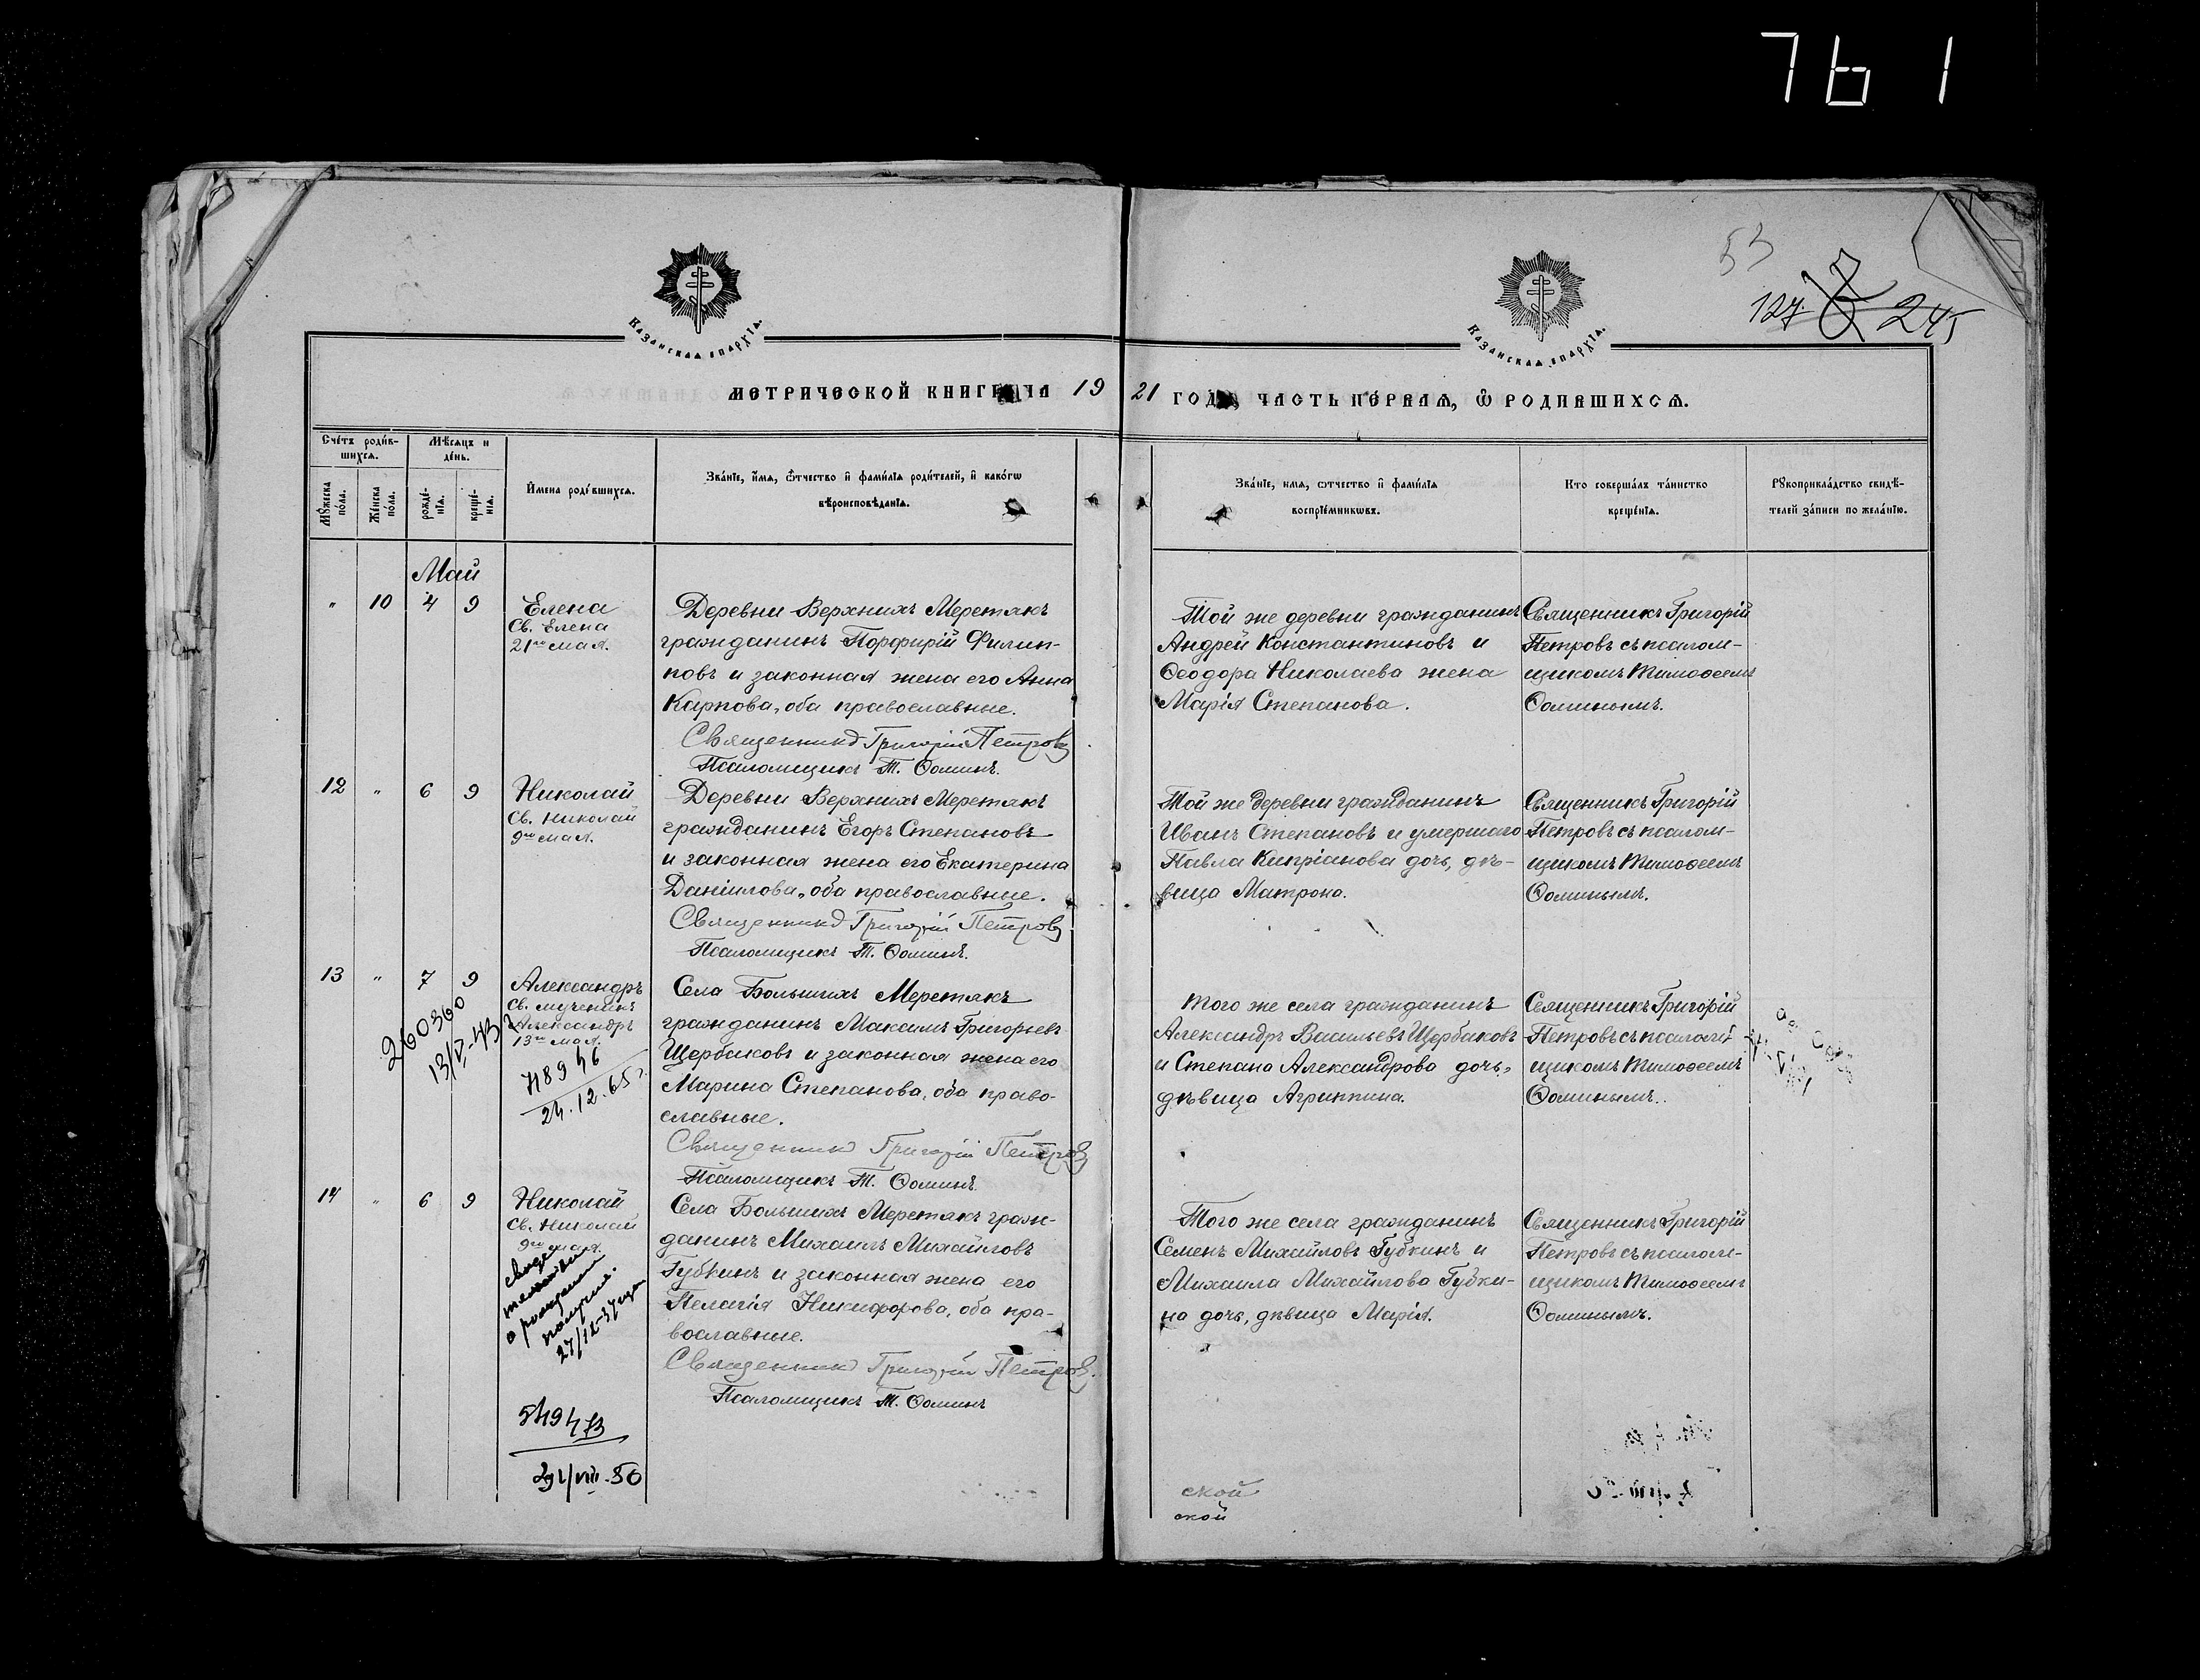 761
53
127. 245
Казанская епархїя.
Казанская епархїя.
МЕТРИЧЕСКОЙ КНИГИ НА 1921 ГОДЪ, ЧАСТЬ ПЕ́РВАѦ, Ѿ РОДИВШИХСѦ.
Сче́тъ роди́вшихсѧ.
Мѣ́сѧцъ и де́нь.
Мꙋ́жеска по́ла.
Же́нска по́ла.
рожде́нїѧ.
креще́нїѧ.
И́мена роди́вшихсѧ.
Зва́нїе, и́мѧ, ѻ҆́тчество и҆ фами́лїѧ роди́телей, и҆ како́гѡ
вѣроисповѣ́данїѧ.
Зва́нїе, имѧ, ѻтчество и҆ фами́лїѧ
воспрїе́мникѡвъ.
Кто соверша́лъ та́инство
креще́нїѧ.
Рꙋкоприкла́дство свидѣ́-
телей за́писи по жела́нїю.
Май
" 10 4 9
Елена
Св. Елена
21го мая.
Деревни Верхнихъ Меретякъ
гражданинъ Порфирій Филип-
повъ и законная жена его Анна
Карпова, оба православные.
Священникъ Григорій Петровъ
Псаломщикъ Т. Ѳоминъ.
Той же деревни гражданинъ
Андрей Константиновъ и
Ѳеодора Николаева жена
Марія Степанова.
Священникъ Григорій
Петровъ съ псалом-
щикомъ Тимоѳеемъ
Ѳоминымъ.
12 " 6 9
Николай
Св. Николай
9го мая.
Деревни Верхнихъ Меретякъ
гражданинъ Егоръ Степановъ
и законная жена его Екатерина
Даніилова, оба православные.
Священникъ Григорій Петровъ
Псаломщикъ Т. Ѳоминъ.
Той же деревни гражданинъ
Иванъ Степановъ и умершаго
Павла Кипріанова дочь, дѣ-
вица Матрона.
Священникъ Григорій
Петровъ съ псалом-
щикомъ Тимоѳеемъ
Ѳоминымъ.
13 " 7 9
Александръ
Св. мученикъ
Александръ
13го мая.
260360
13/V-43
718946
24.12.65г.
Села Большихъ Меретякъ
гражданинъ Максимъ Григорьевъ
Щербаковъ и законная жена его
Марина Степанова, оба право-
славные.
Священникъ Григорій Петровъ
Псаломщикъ Т. Ѳоминъ.
Того же села гражданинъ
Александръ Васильевъ Щербаковъ
и Степана Александрова дочь,
дѣвица Агриппина.
Священникъ Григорій
Петровъ съ псалом-
щикомъ Тимоѳеемъ
Ѳоминымъ.
14 " 6 9
Николай
Св. Николай
9го мая.
о рождении
27/IX-37
Села Большихъ Меретякъ граж-
данинъ Михаилъ Михайловъ
Губкинъ и законная жена его
Пелагія Никифорова, оба пра-
вославные.
Священникъ Григорій Петровъ.
Псаломщикъ Т. Ѳоминъ
Того же села гражданинъ
Семенъ Михайловъ Губкинъ и
Михаила Михайлова Губки-
на дочь, дѣвица Марія.
Священникъ Григорій
Петровъ съ псалом-
щикомъ Тимоѳеемъ
Ѳоминымъ.
ской
ской